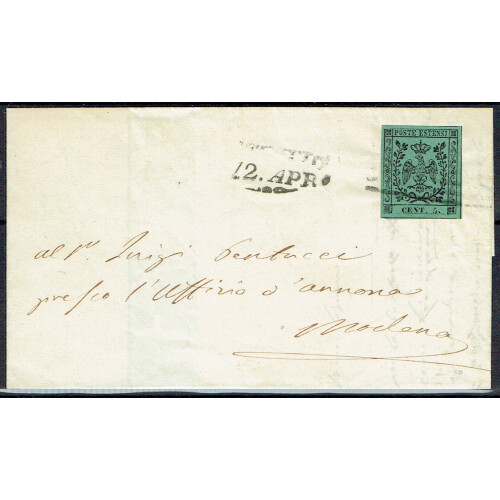 POSTE ESTENSI
CENT. 5.
12. APR
al Sr Luigi
presso l'Uffizio d'annona
Modena